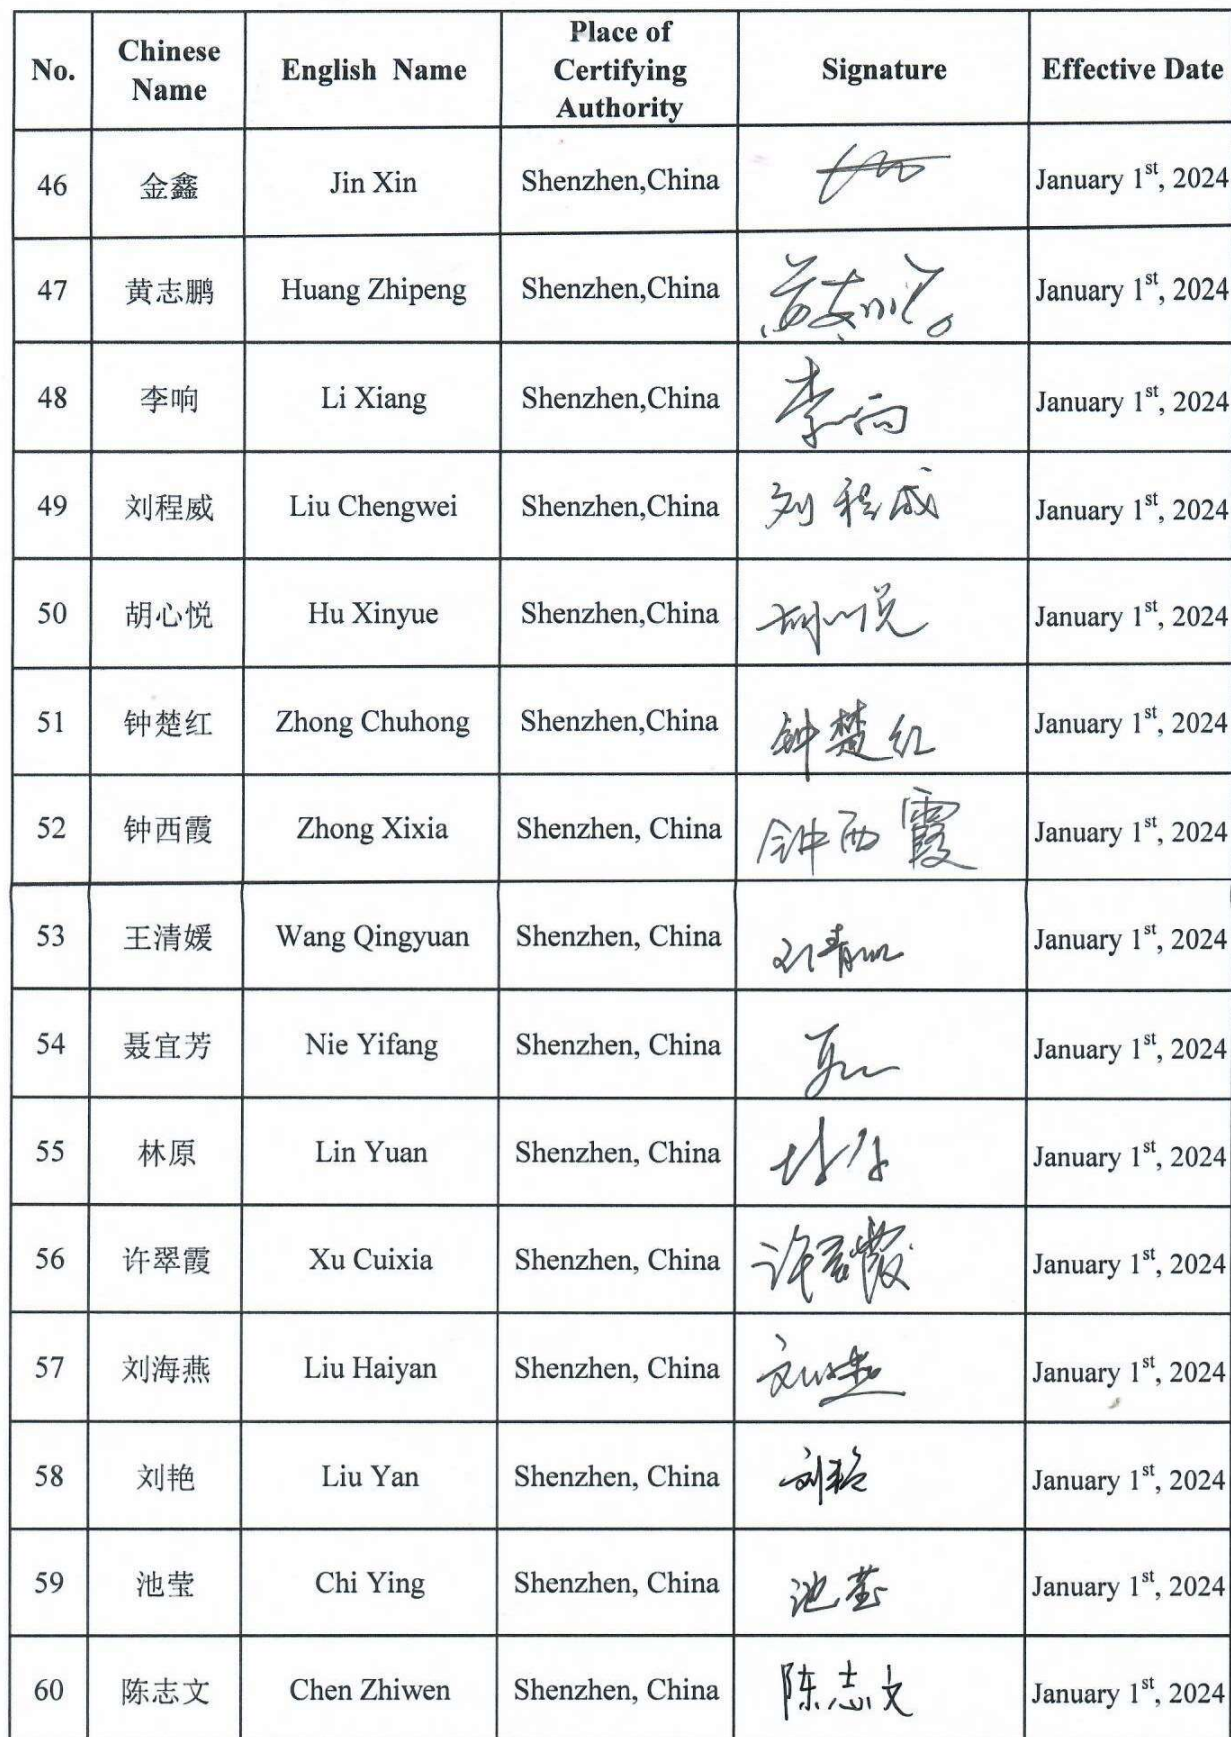 No. Chinese Name English Name Place of Certifying Authority Signature Effective Date
46 金鑫 Jin Xin Shenzhen,China January 1st, 2024
47 黄志鹏 Huang Zhipeng Shenzhen,China January 1st, 2024
48 李响 Li Xiang Shenzhen,China 李响 January 1st, 2024
49 刘程威 Liu Chengwei Shenzhen,China 刘程威 January 1st, 2024
50 胡心悦 Hu Xinyue Shenzhen,China 胡心悦 January 1st, 2024
51 钟楚红 Zhong Chuhong Shenzhen,China 钟楚红 January 1st, 2024
52 钟西霞 Zhong Xixia Shenzhen, China 钟西霞 January 1st, 2024
53 王清媛 Wang Qingyuan Shenzhen, China January 1st, 2024
54 聂宜芳 Nie Yifang Shenzhen, China January 1st, 2024
55 林原 Lin Yuan Shenzhen, China January 1st, 2024
56 许翠霞 Xu Cuixia Shenzhen, China 许翠霞 January 1st, 2024
57 刘海燕 Liu Haiyan Shenzhen, China 刘海燕 January 1st, 2024
58 刘艳 Liu Yan Shenzhen, China 刘艳 January 1st, 2024
59 池莹 Chi Ying Shenzhen, China 池莹 January 1st, 2024
60 陈志文 Chen Zhiwen Shenzhen, China 陈志文 January 1st, 2024